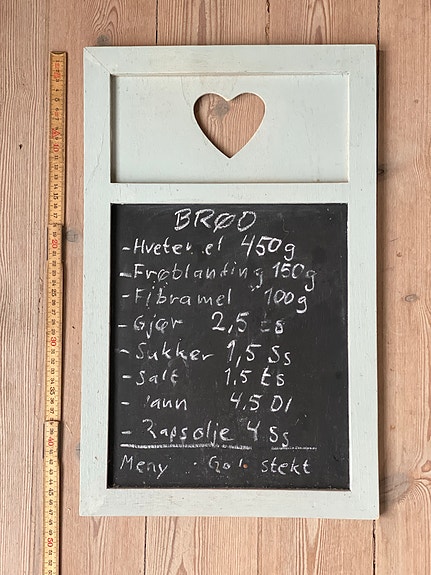 BRØD
- Hvetemel 450g
- Frøblanding 150g
- Fibramel 100g
- Gjør 2,5 ts
- Sukker 1,5 Ss
- Salt 1,5 ts
- Vann 4,5 Dl
- Rapsolje 4 Ss
Meny stekt